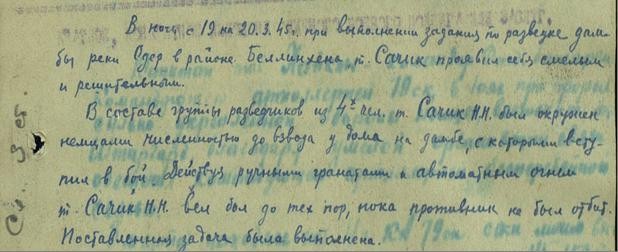 В ночь с 19 на 20.3.45г. при выполнении задания по разведке дам-
бы реки Одер в районе Беллинхена т. Сачик проявил себя смелым
и решительным.
В составе группы разведчиков из 4х чел. т. Сачик Н.Н. был окружен
немцами численностью до взвода у дома на дамбе, с которыми всту-
пил в бой. Действуя ручными гранатами и автоматным огнем
т. Сачик Н.Н. вел бой до тех пор, пока противник не был отбит.
Поставленная задача была выполнена.